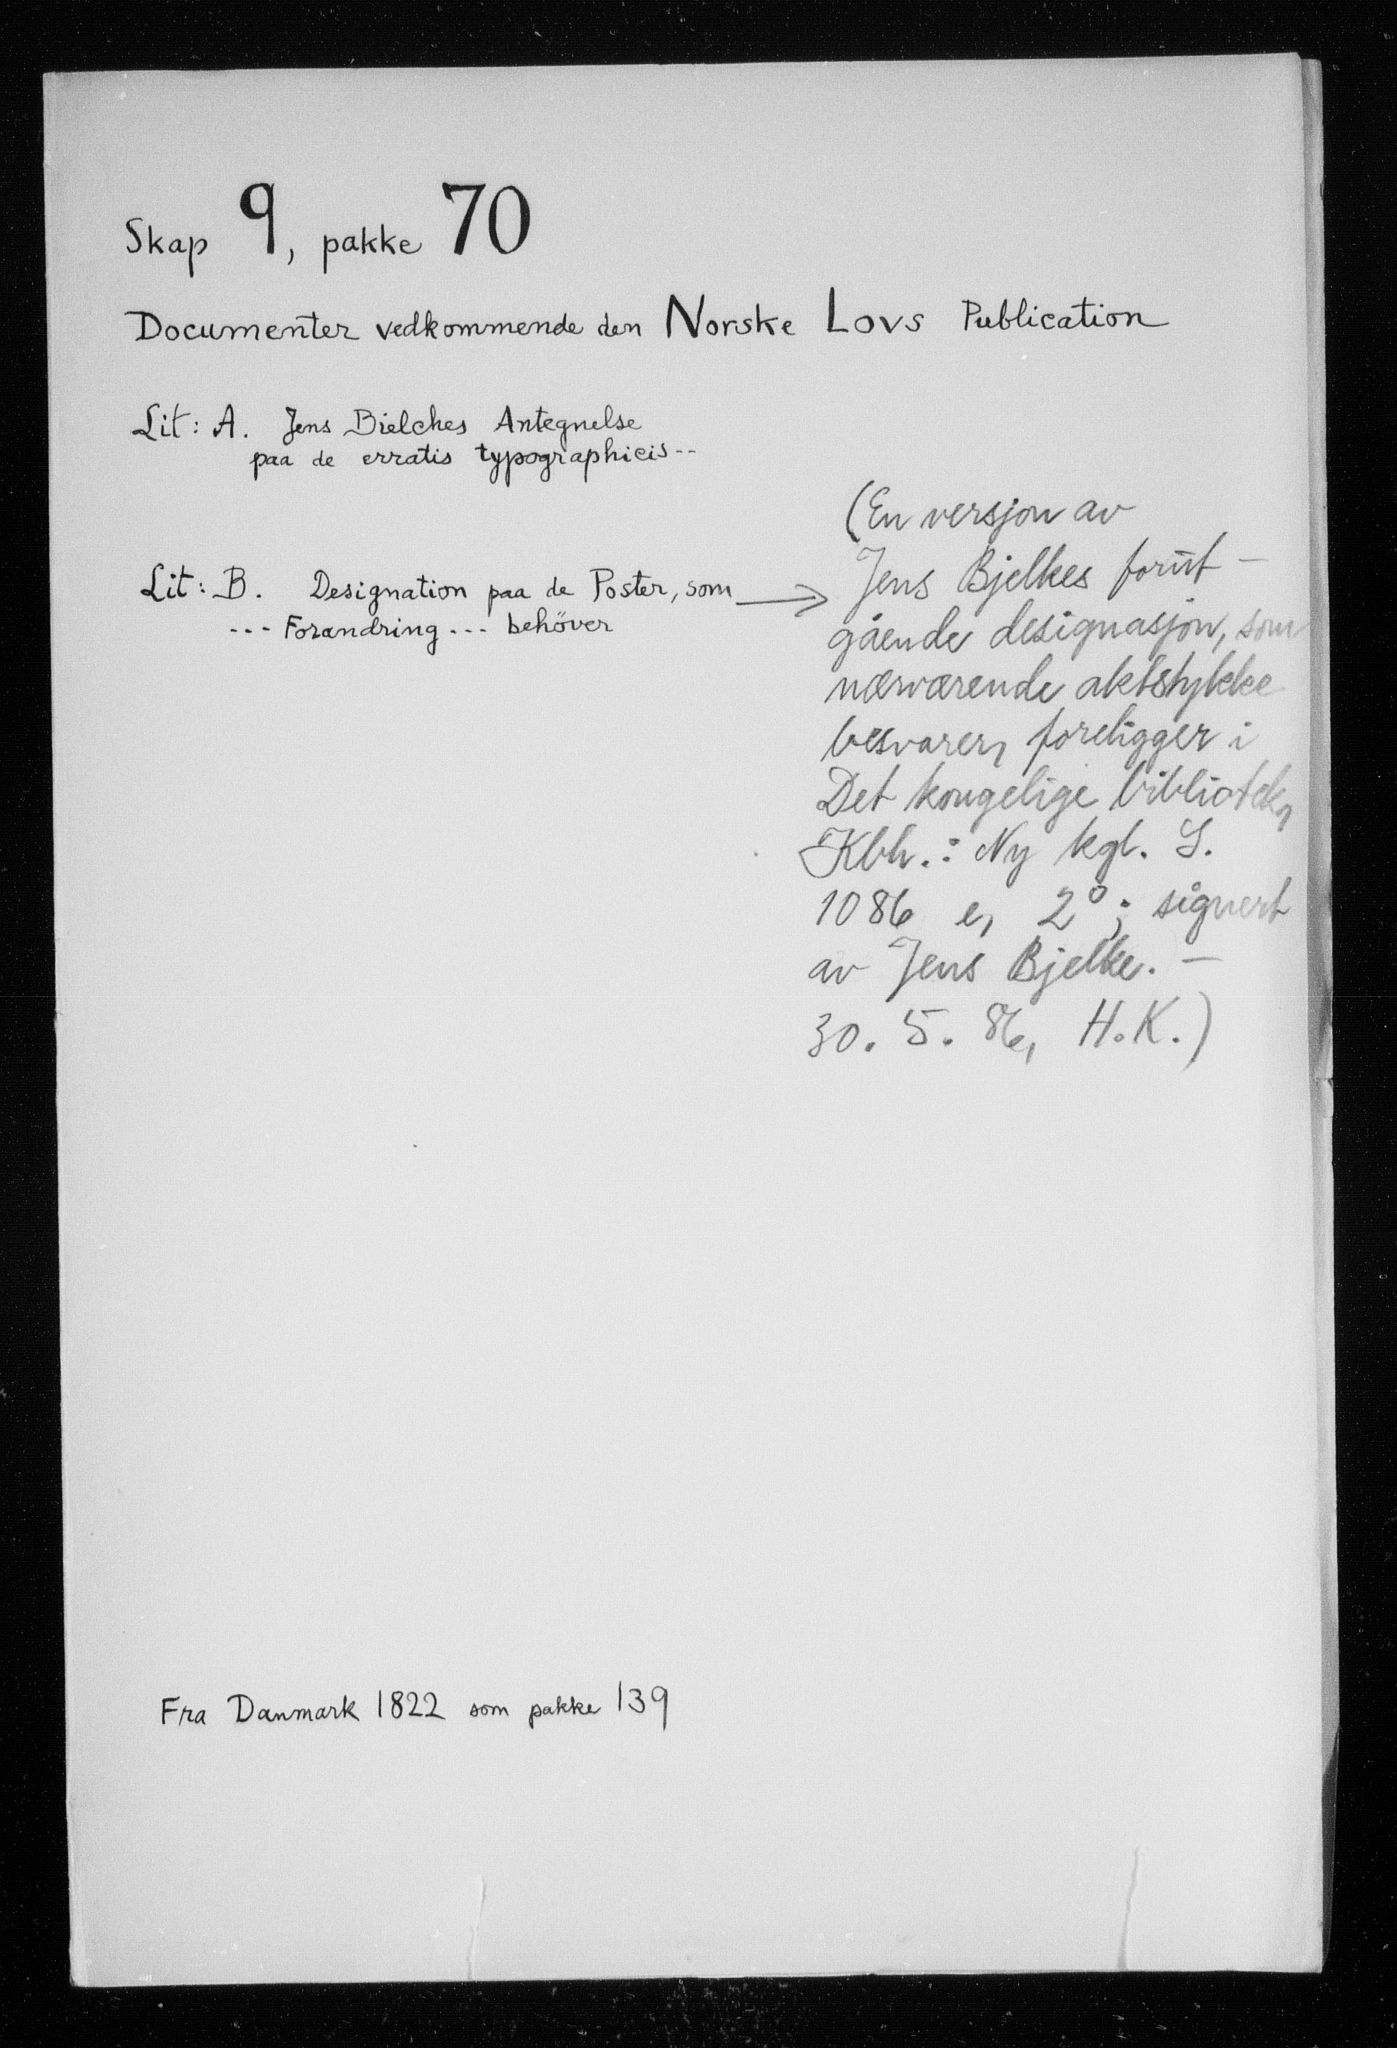 Skap 9, pakke 70
Documenter vedkommende den Norske Lovs Publication
Lit: A. Jens Bielches Antegnelse
paa de erratis typographicis--
Lit: B. Designation paa de Poster, som
--- Forandring --- behöver
(En versjon av
Jens Bjelkes forut-
gående designasjon, som
nærværende aktstykke
besvarer, foreligger i
Det kongelige bibliotek,
Kbh.: Ny kgl. S.
1086 e, 2°; signert
av Jens Bjelke. —
30. 5. 86, H.K.)
Fra Danmark 1822 som pakke 139